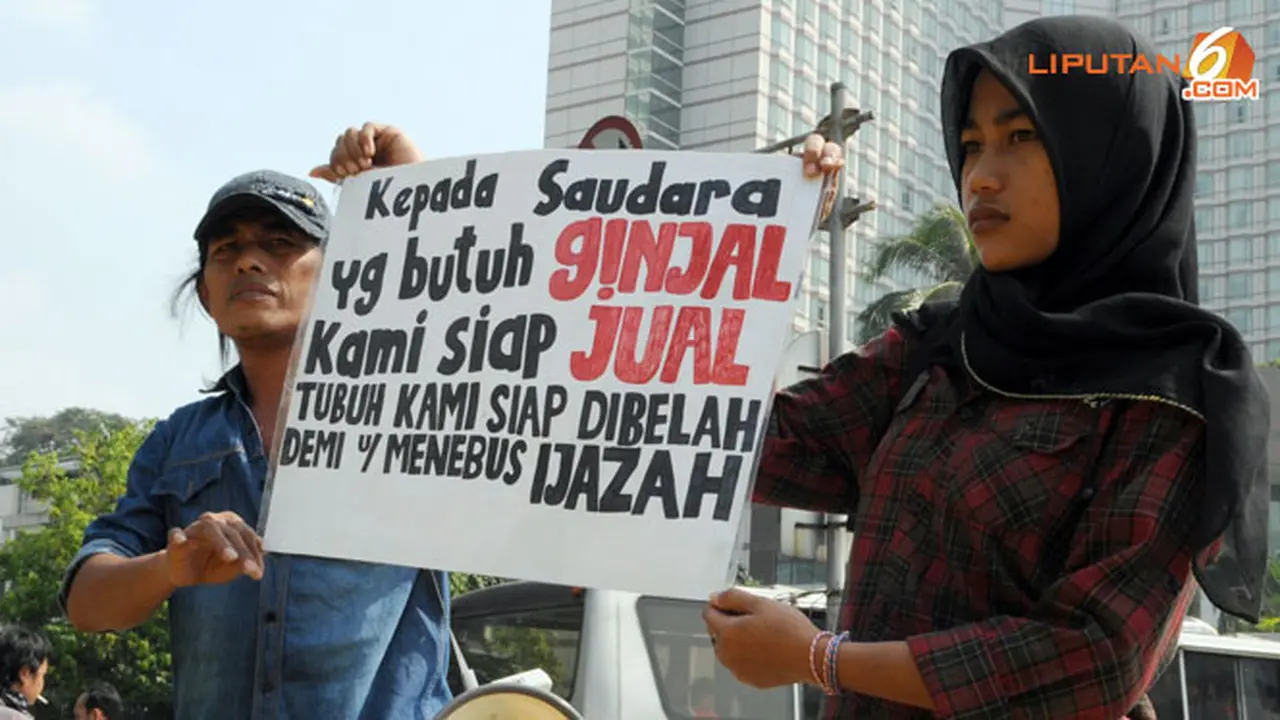 LIPUTAN 6 .COM
Kepada Saudara
yg butuh g!NJAL
Kami siap JUAL
TUBUH KAMI SIAP DIBELAH
DEMI u/ MENEBUS IJAZAH